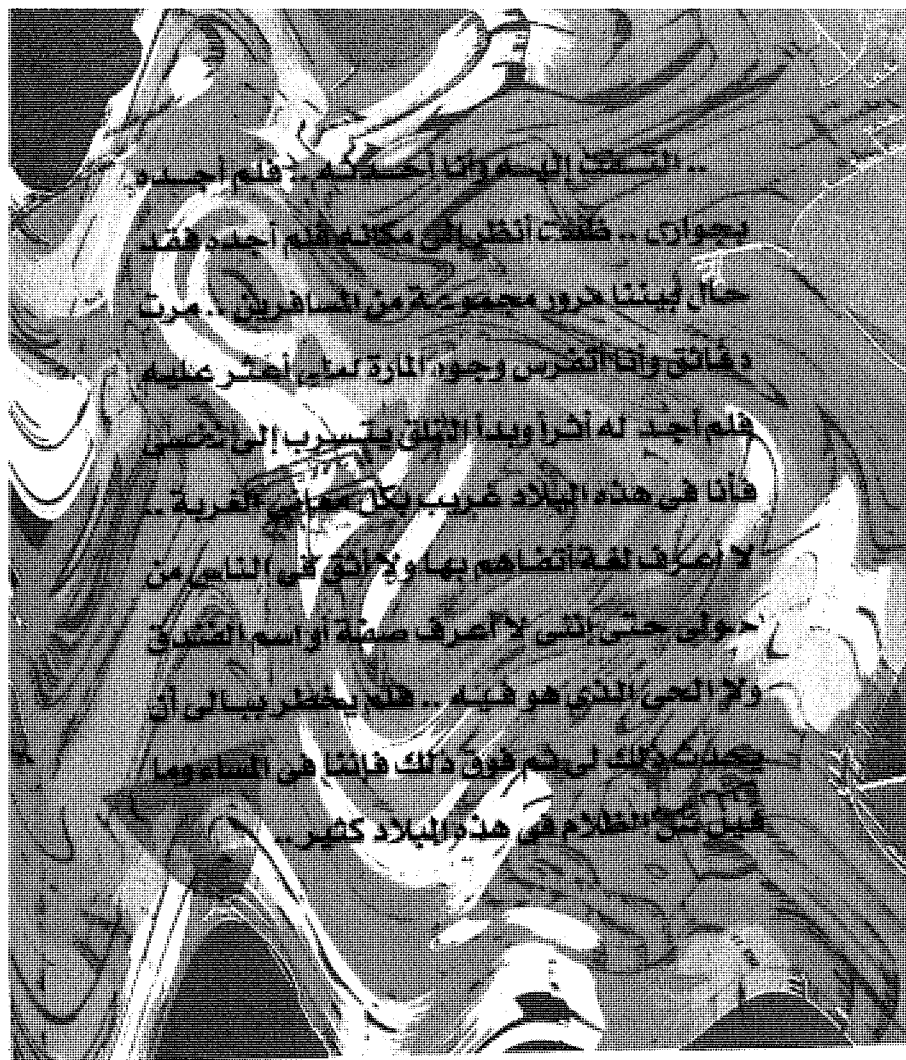 .. التفت إليه وأنا أحدثه .. فلم أجده
بجوارى .. ظللت أنظر فى مكانه فلم أجده فقد
حال بيننا مرور مجموعة من المسافرين .. مرت
دقائق وأنا أتفرس وجوه المارة لعلى أعثر عليه
فلم أجد له أثراً وبدأ القلق يتسرب إلى نفسى
فأنا فى هذه البلاد غريب بكل معانى الغربة ..
لا أعرف لغة أتفاهم بها ولا أثق فى الناس من
حولى حتى إننى لا أعرف صفة أو اسم الفندق
ولا الحى الذى هو فيه .. فلم يخطر ببالى أن
يحدث ذلك لى ثم فوق ذلك فإننا فى المساء وما
قيل عن الظلام فى هذه البلاد كثير..